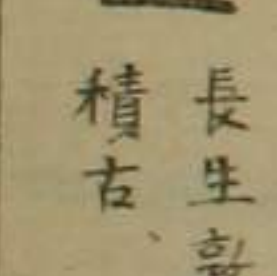 長生敦
積古、